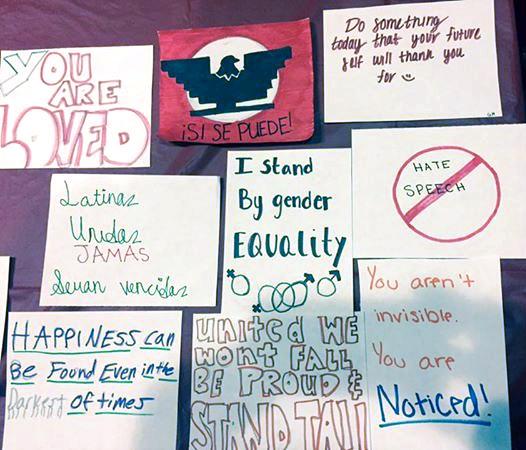 YOU
ARE
LOVED
¡SI SE PUEDE!
Do something
today that your future
self will thank you
for
Latinas
Unidas
JAMAS
Seran vencidas
I stand
By gender
EQUALITY
HATE
SPEECH
HAPPINESS can
Be Found Even in the
Darkest of times
UNITED WE
WONT FALL
BE PROUD &
STAND TALL
You aren't
invisible.
You are
Noticed!